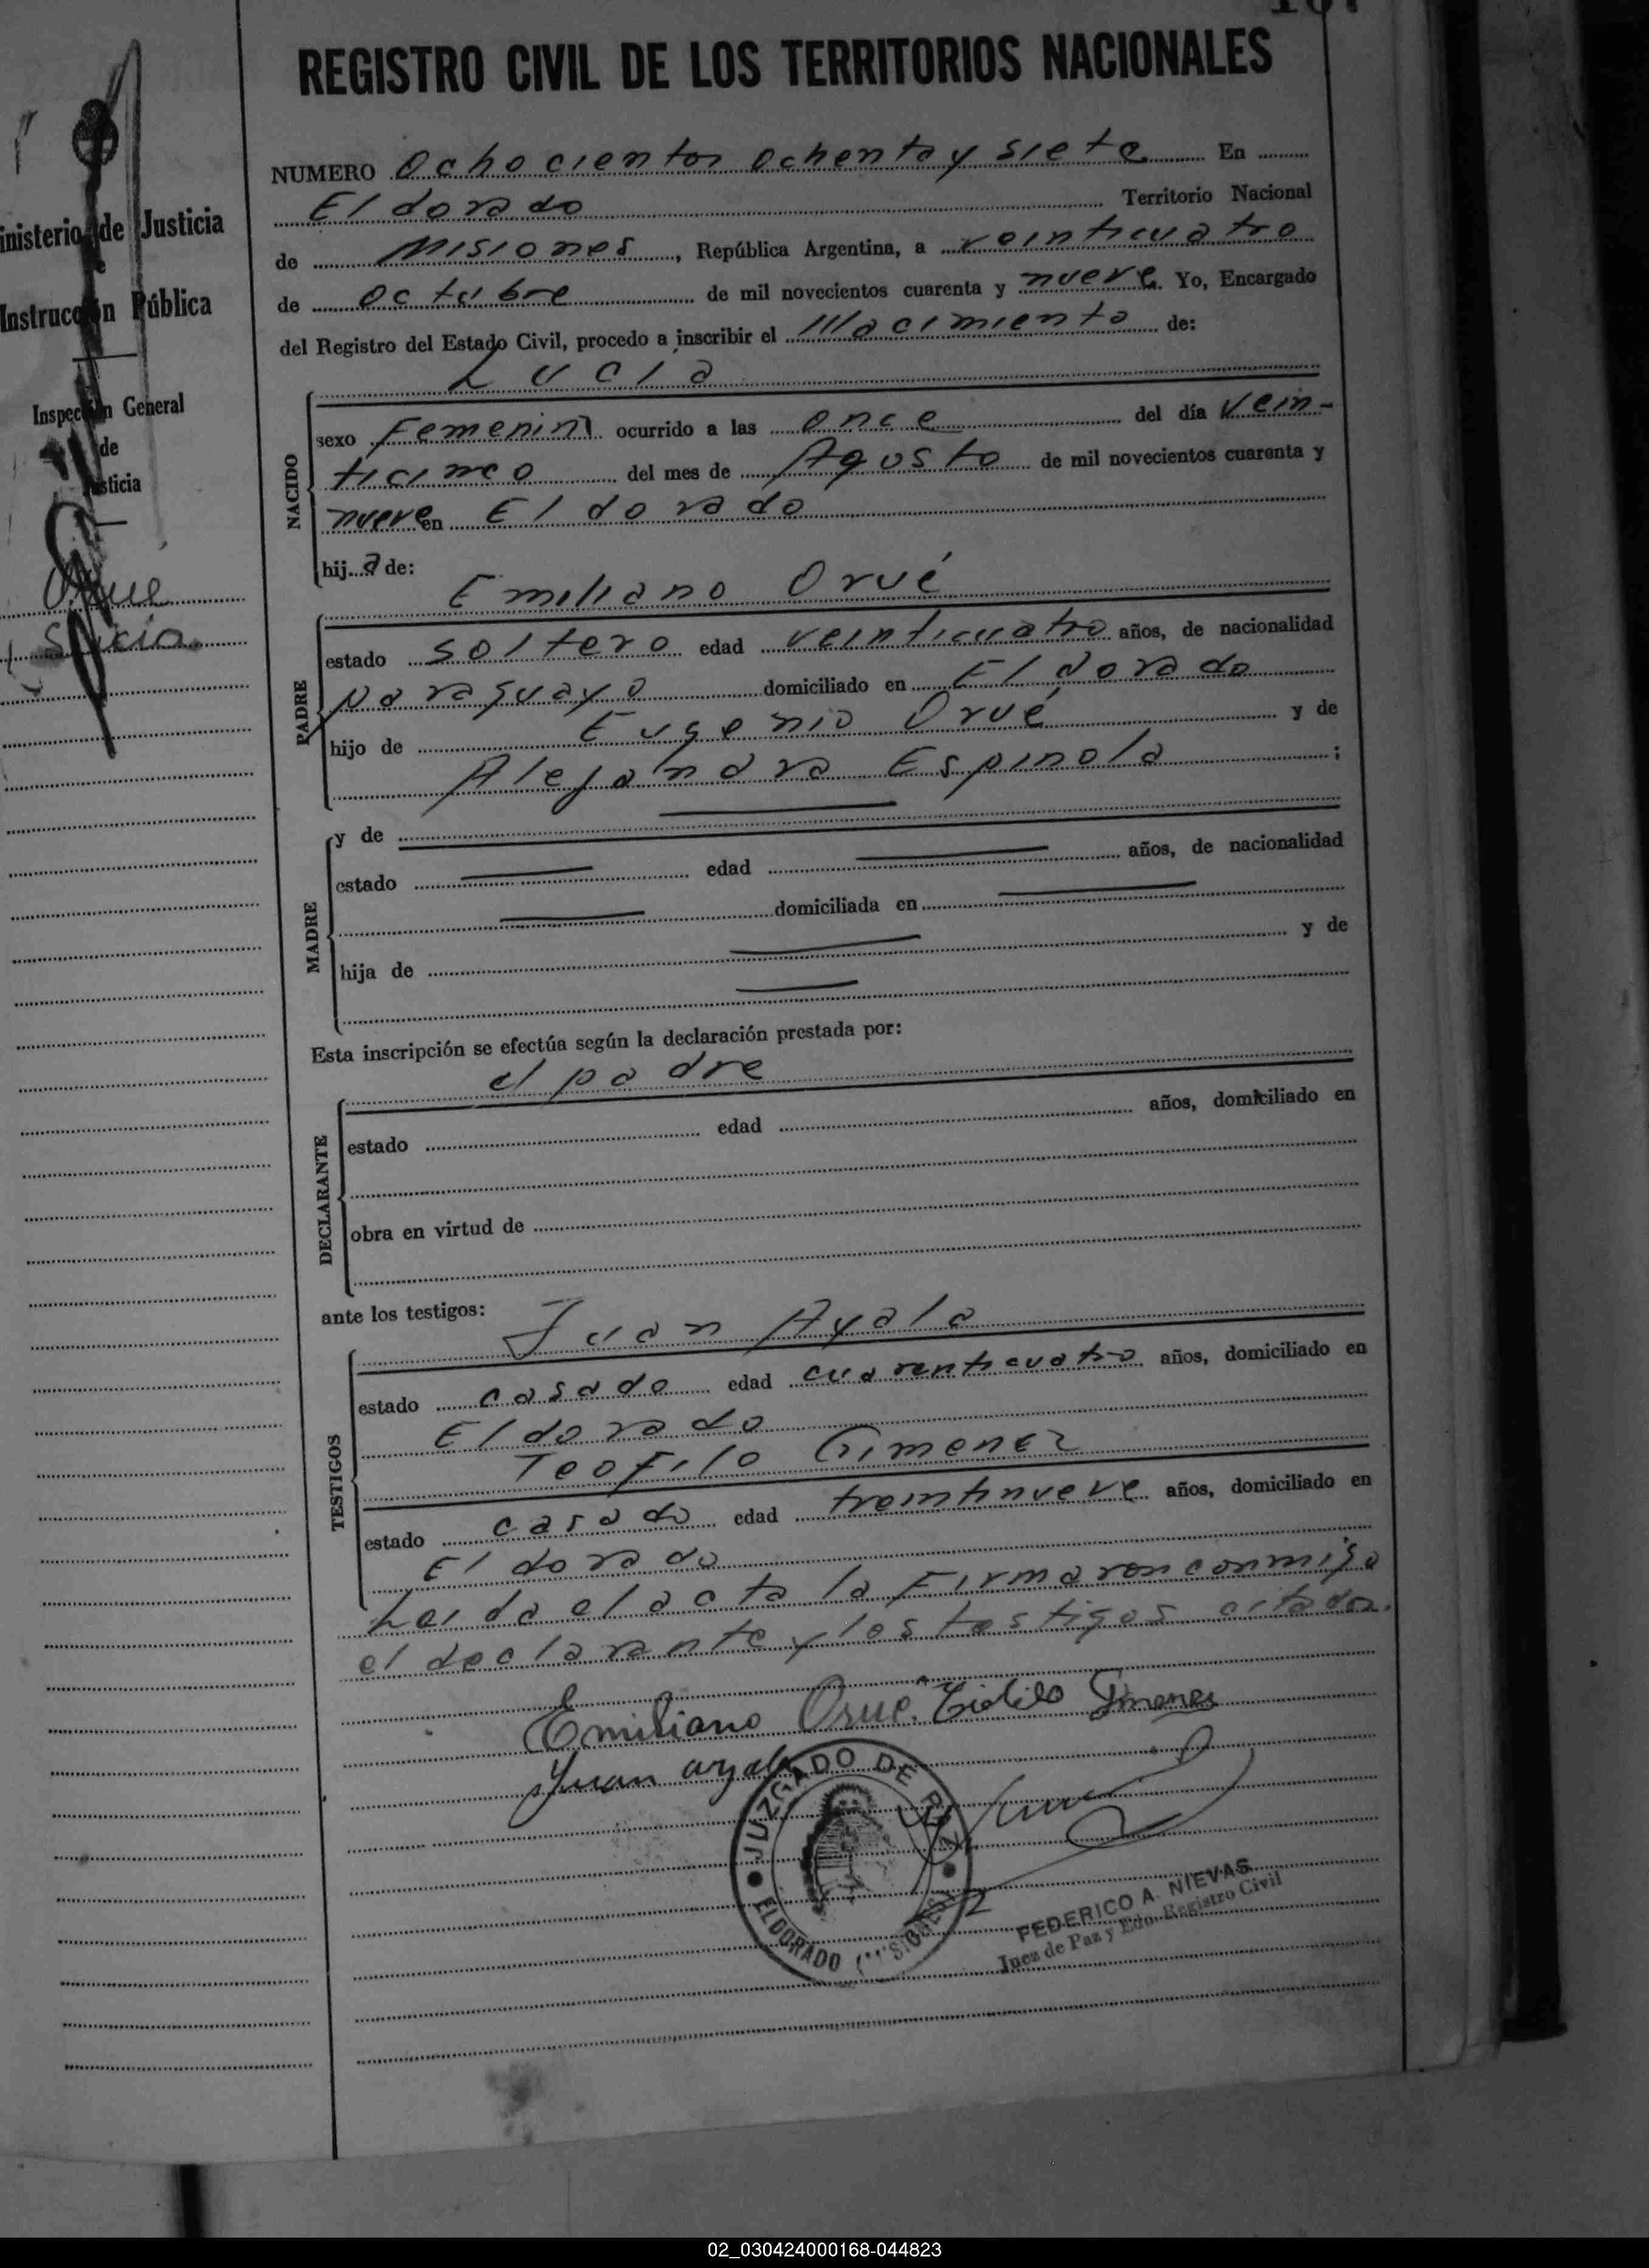 REGISTRO CIVIL DE LOS TERRITORIOS NACIONALES
NUMERO Ochocientos ochenta y siete En
Eldorado Territorio Nacional
de Misiones, República Argentina, a veinticuatro
de octubre de mil novecientos cuarenta y nueve. Yo, Encargado
del Registro del Estado Civil, procedo a inscribir el Nacimiento de:
Lucia
NACIDO
sexo Femenino ocurrido a las once del día vein-
ticinco del mes de Agosto de mil novecientos cuarenta y
nueve en Eldorado
hij a de:
Emiliano Orué
PADRE
estado soltero edad veinticuatro años, de nacionalidad
paraguayo domiciliado en Eldorado
hijo de Eugenio Orué y de
Alejandra Espinola ;
MADRE
y de
estado edad años, de nacionalidad
domiciliada en
hija de y de
Esta inscripción se efectúa según la declaración prestada por:
el padre
DECLARANTE
estado edad años, domiciliado en
obra en virtud de
ante los testigos:
Juan Ayala
TESTIGOS
estado casado edad cuarenticuatro años, domiciliado en
Eldorado
Teofilo Gimenez
estado casado edad treintinueve años, domiciliado en
Eldorado
Leida el acta la Firmaron conmigo
el declarante y los testigos citados.
Emiliano Orué. Gimenes
Juan ayala
JUZGADO DE PAZ
ELDORADO (MISIONES)
FEDERICO A. NIEVAS
Juez de Paz y Edo. Registro Civil
inisterio de Justicia
e
Instrucción Pública
Inspección General
de
Justicia
Orue
Lucia
02_030424000168-044823